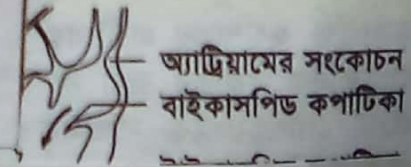 অ্যাট্রিয়ামের সংকোচন
বাইকাসপিড কপাটিকা